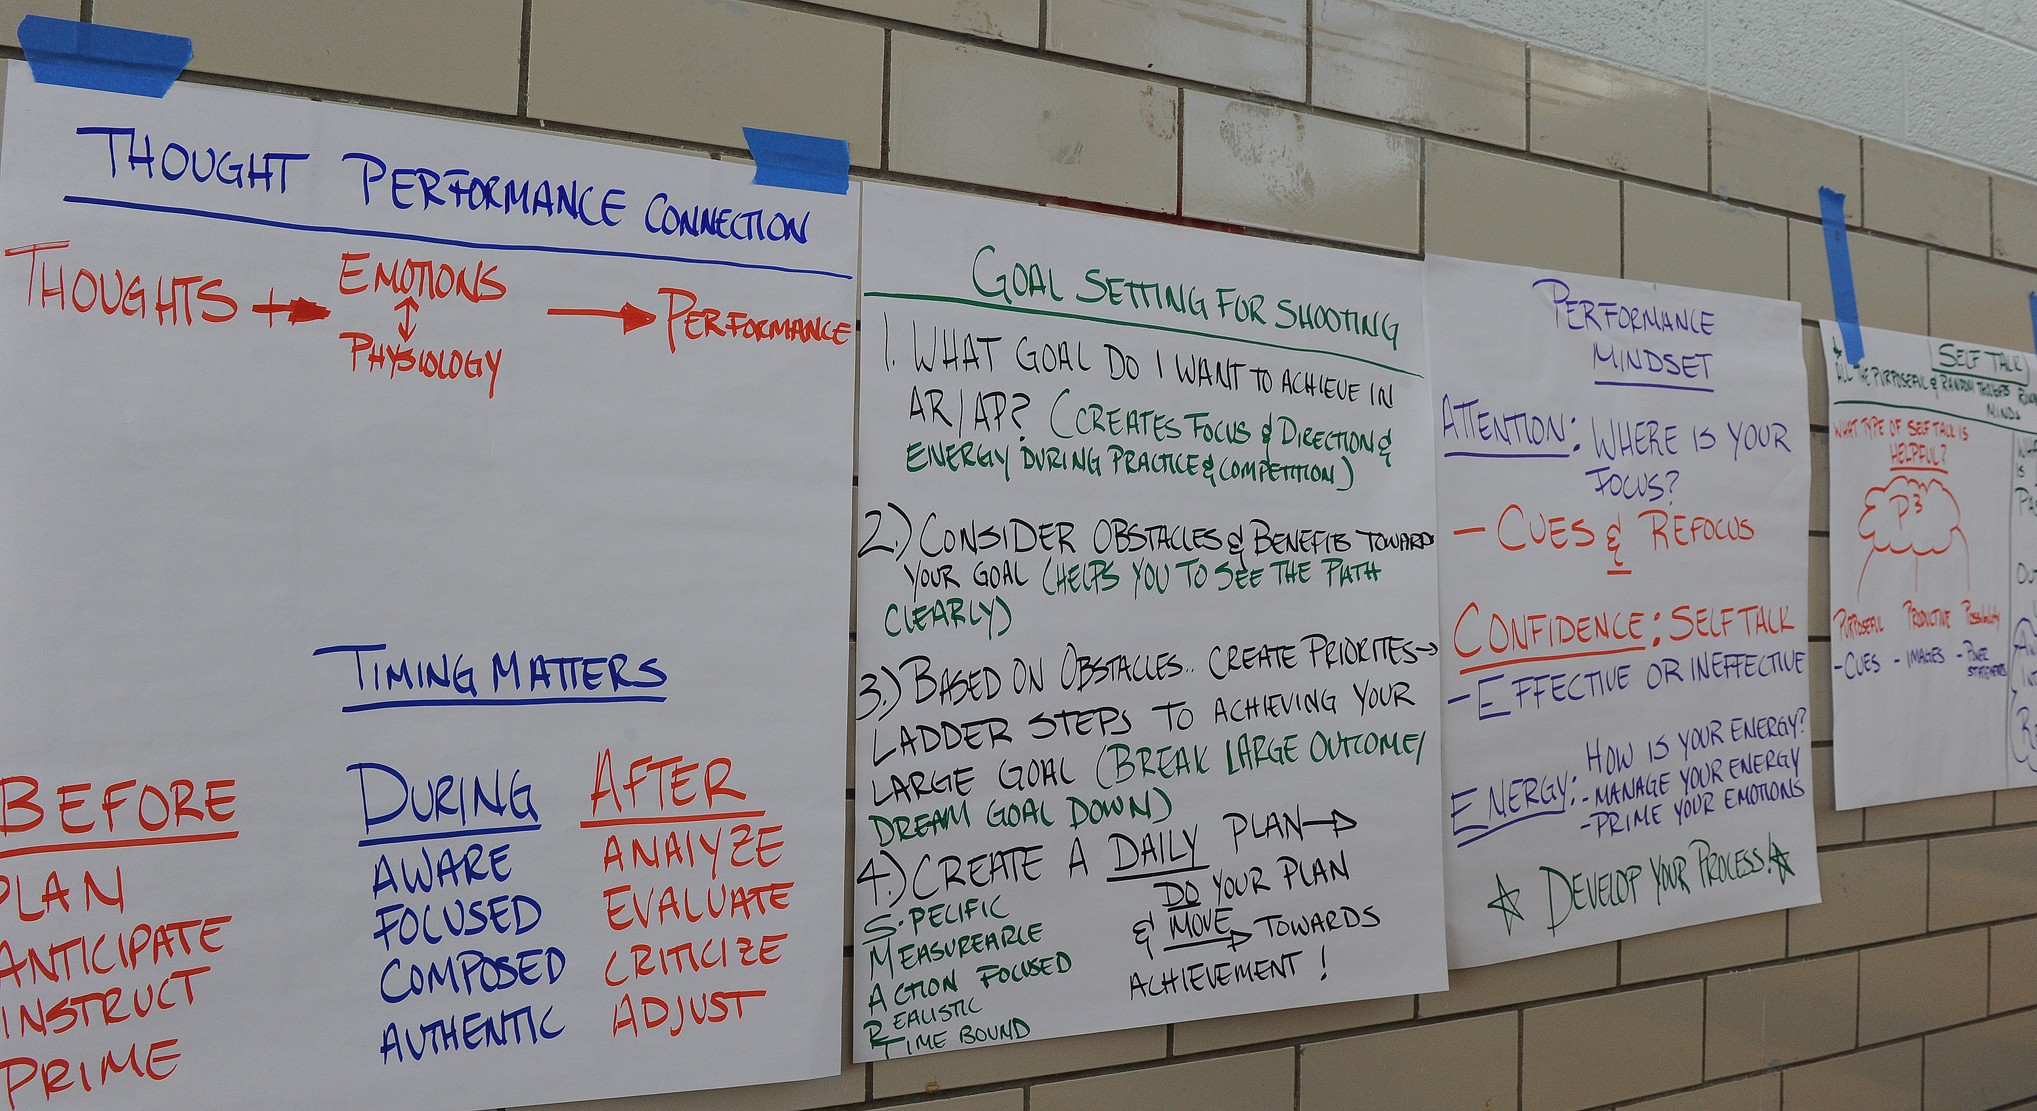 THOUGHT PERFORMANCE CONNECTION
THOUGHTS
EMOTIONS
PHYSIOLOGY
PERFORMANCE
TIMING MATTERS
BEFORE
PLAN
ANTICIPATE
INSTRUCT
PRIME
DURING
AWARE
FOCUSED
COMPOSED
AUTHENTIC
AFTER
ANALYZE
EVALUATE
CRITICIZE
ADJUST
GOAL SETTING FOR SHOOTING
1. WHAT GOAL DO I WANT TO ACHIEVE IN
AR/AP? (CREATES FOCUS & DIRECTION &
ENERGY DURING PRACTICE & COMPETITION)
2.) CONSIDER OBSTACLES & BENEFITS TOWARD
YOUR GOAL (HELPS YOU TO SEE THE PATH
CLEARLY)
3.) BASED ON OBSTACLES.. CREATE PRIORITIES→
LADDER STEPS TO ACHIEVING YOUR
LARGE GOAL (BREAK LARGE OUTCOME/
DREAM GOAL DOWN)
4.) CREATE A DAILY PLAN→
DO YOUR PLAN
& MOVE → TOWARDS
ACHIEVEMENT!
S-PECIFIC
MEASUREABLE
ACTION FOCUSED
REALISTIC
TIME BOUND
PERFORMANCE
MINDSET
ATTENTION: WHERE IS YOUR
FOCUS?
- CUES & REFOCUS
CONFIDENCE: SELF TALK
- EFFECTIVE OR INEFFECTIVE
ENERGY: HOW IS YOUR ENERGY?
- MANAGE YOUR ENERGY
- PRIME YOUR EMOTIONS
☆ DEVELOP YOUR PROCESS! ☆
SELF TALK
ALL THE PURPOSEFUL & RANDOM THOUGHTS
MINDS
WHAT TYPE OF SELF TALK IS
HELPFUL?
P³
PURPOSEFUL PRODUCTIVE Possibility
- CUES - IMAGES - POWER
STATEMENTS